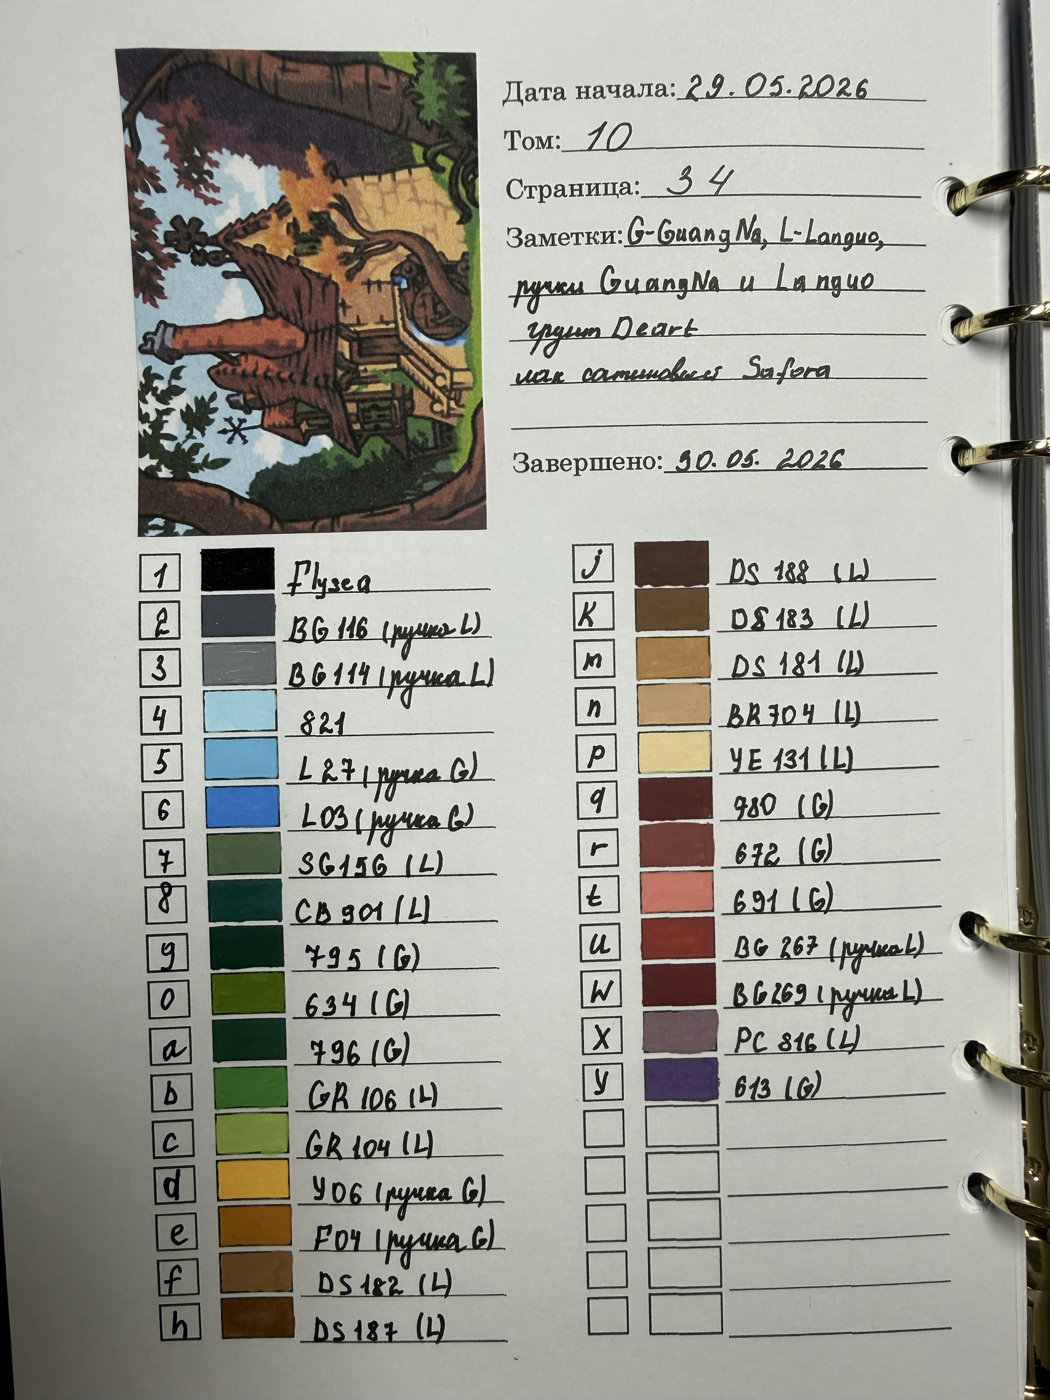 Дата начала: 29.05.2026
Том: 10
Страница: 34
Заметки: G-GuangNa, L-Languo,
ручки GuangNa и Languo
грунт Deart
лак сатиновый Safora
Завершено: 30.05. 2026
1 Flysea
2 BG 116 (ручка L)
3 BG 114 (ручка L)
4 821
5 L 27 (ручка G)
6 L03 (ручка G)
7 SG156 (L)
8 CB 901 (L)
9 795 (G)
0 634 (G)
a 796 (G)
b GR 106 (L)
c GR 104 (L)
d Y06 (ручка G)
e F04 (ручка G)
f DS 182 (L)
h DS 187 (L)
j DS 188 (L)
K DS 183 (L)
m DS 181 (L)
n BR 704 (L)
p YE 131 (L)
q 980 (G)
r 672 (G)
t 691 (G)
u BG 267 (ручка L)
W BG269 (ручка L)
X PC 816 (L)
y 613 (G)